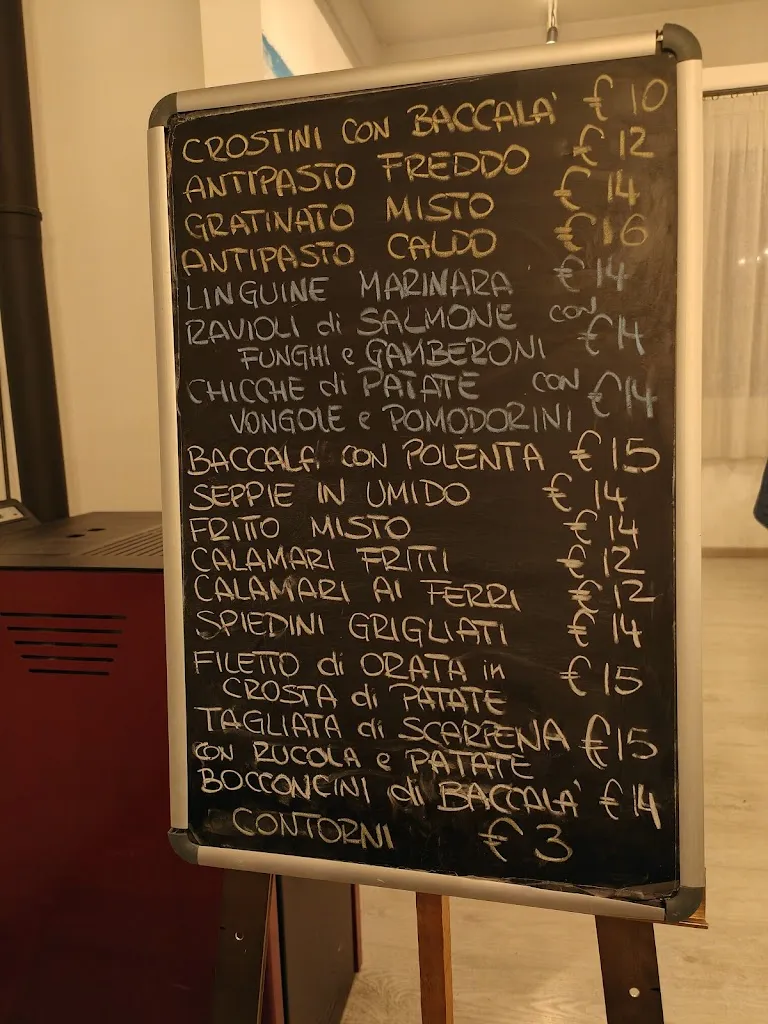 CROSTINI CON BACCALA' € 10
ANTIPASTO FREDDO € 12
GRATINATO MISTO € 14
ANTIPASTO CALDO € 16
LINGUINE MARINARA € 14
RAVIOLI di SALMONE con
FUNGHI e GAMBERONI € 14
CHICCHE di PATATE CON € 14
VONGOLE e POMODORINI
BACCALA' CON POLENTA € 15
SEPPIE IN UMIDO € 14
FRITTO MISTO € 14
CALAMARI FRITTI € 12
CALAMARI AI FERRI € 12
SPIEDINI GRIGLIATI € 14
FILETTO di ORATA in € 15
CROSTA di PATATE
TAGLIATA di SCARPENA € 15
CON RUCOLA e PATATE
BOCCONCINI di BACCALA' € 14
CONTORNI € 3